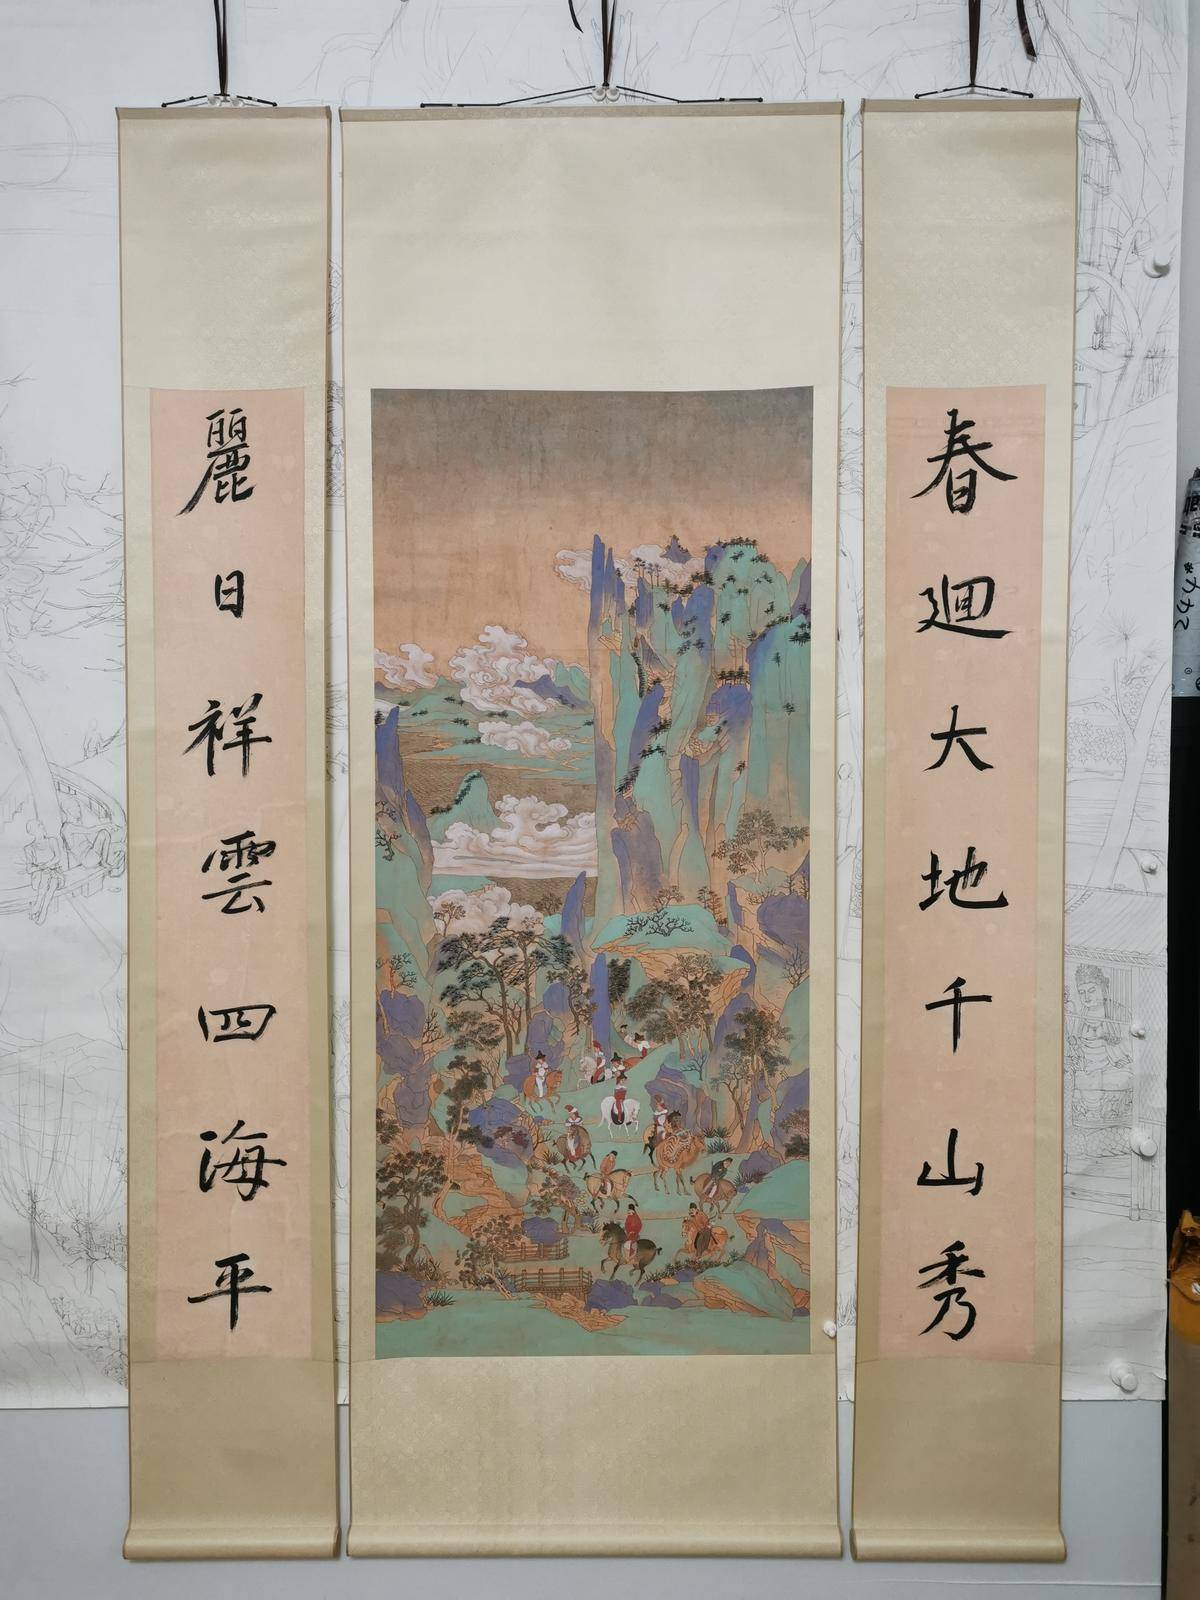 春迴大地千山秀
麗日祥雲四海平